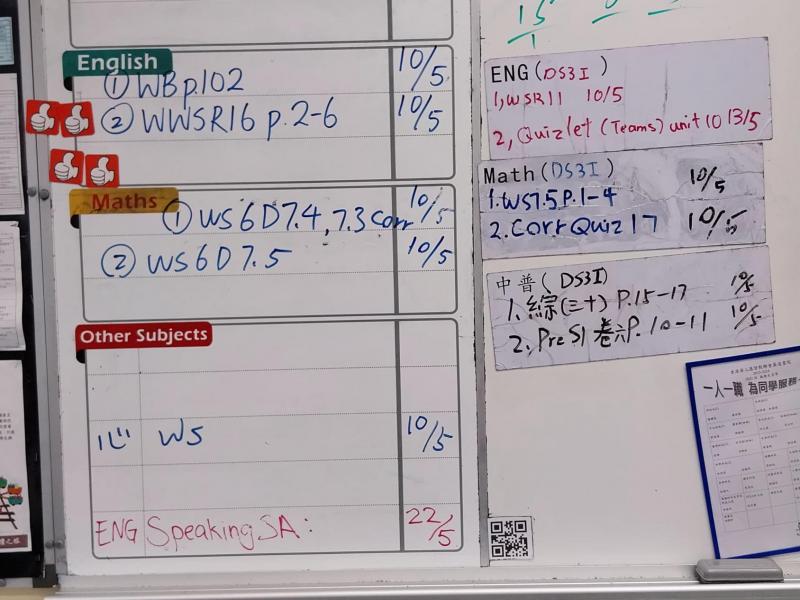 15
1
English
① WB p.102 10/5
② WWSR16 p.2-6 10/5
Maths
① WS 6D7.4, 7.3 Corr 10/5
② WS 6D7.5 10/5
Other Subjects
心 WS 10/5
ENG Speaking SA: 22/5
ENG (DS3I)
1, WSR11 10/5
2, Quizlet (Teams) unit 10 13/5
Math (DS3I)
1. WS7.5 P.1-4 10/5
2. Corr Quiz 17 10/5
中普 (DS3I)
1. 綜(三十) P.15-17 10/5
2. Pre S1 卷六P. 10-11 10/5
一人一職 為同學服務